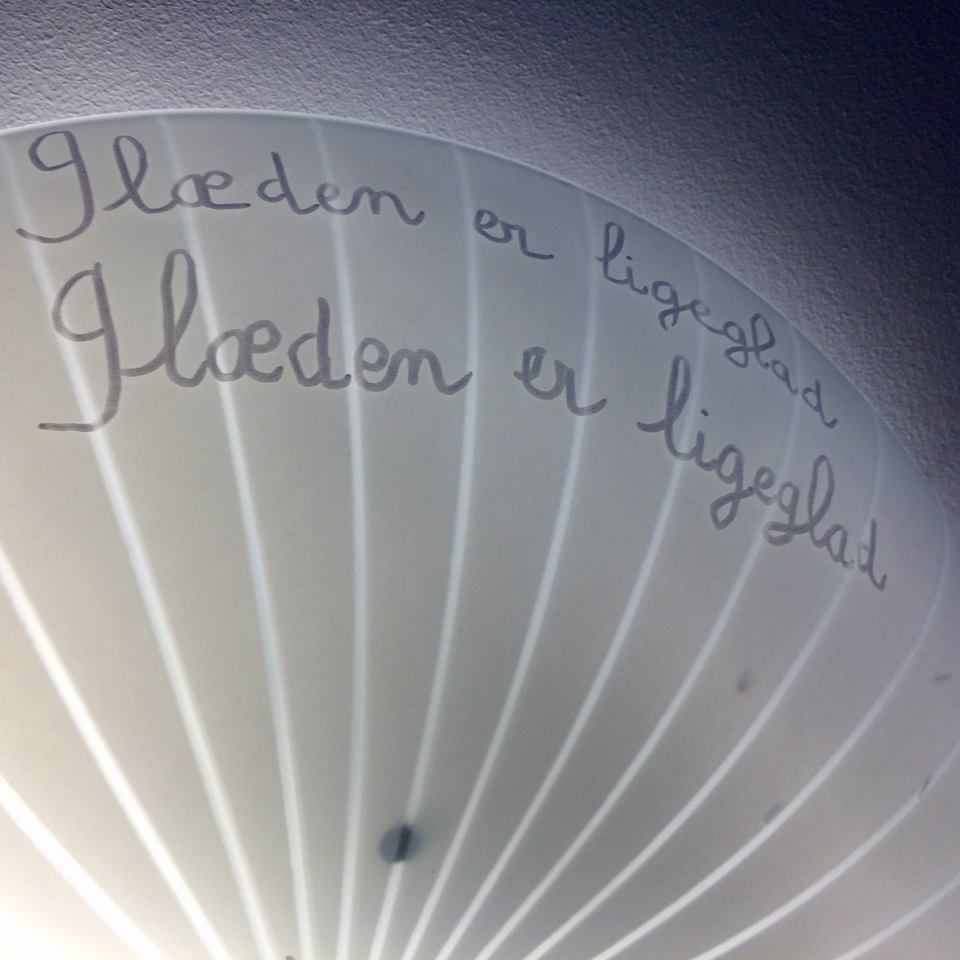 Glæden er ligeglad
Glæden er ligeglad